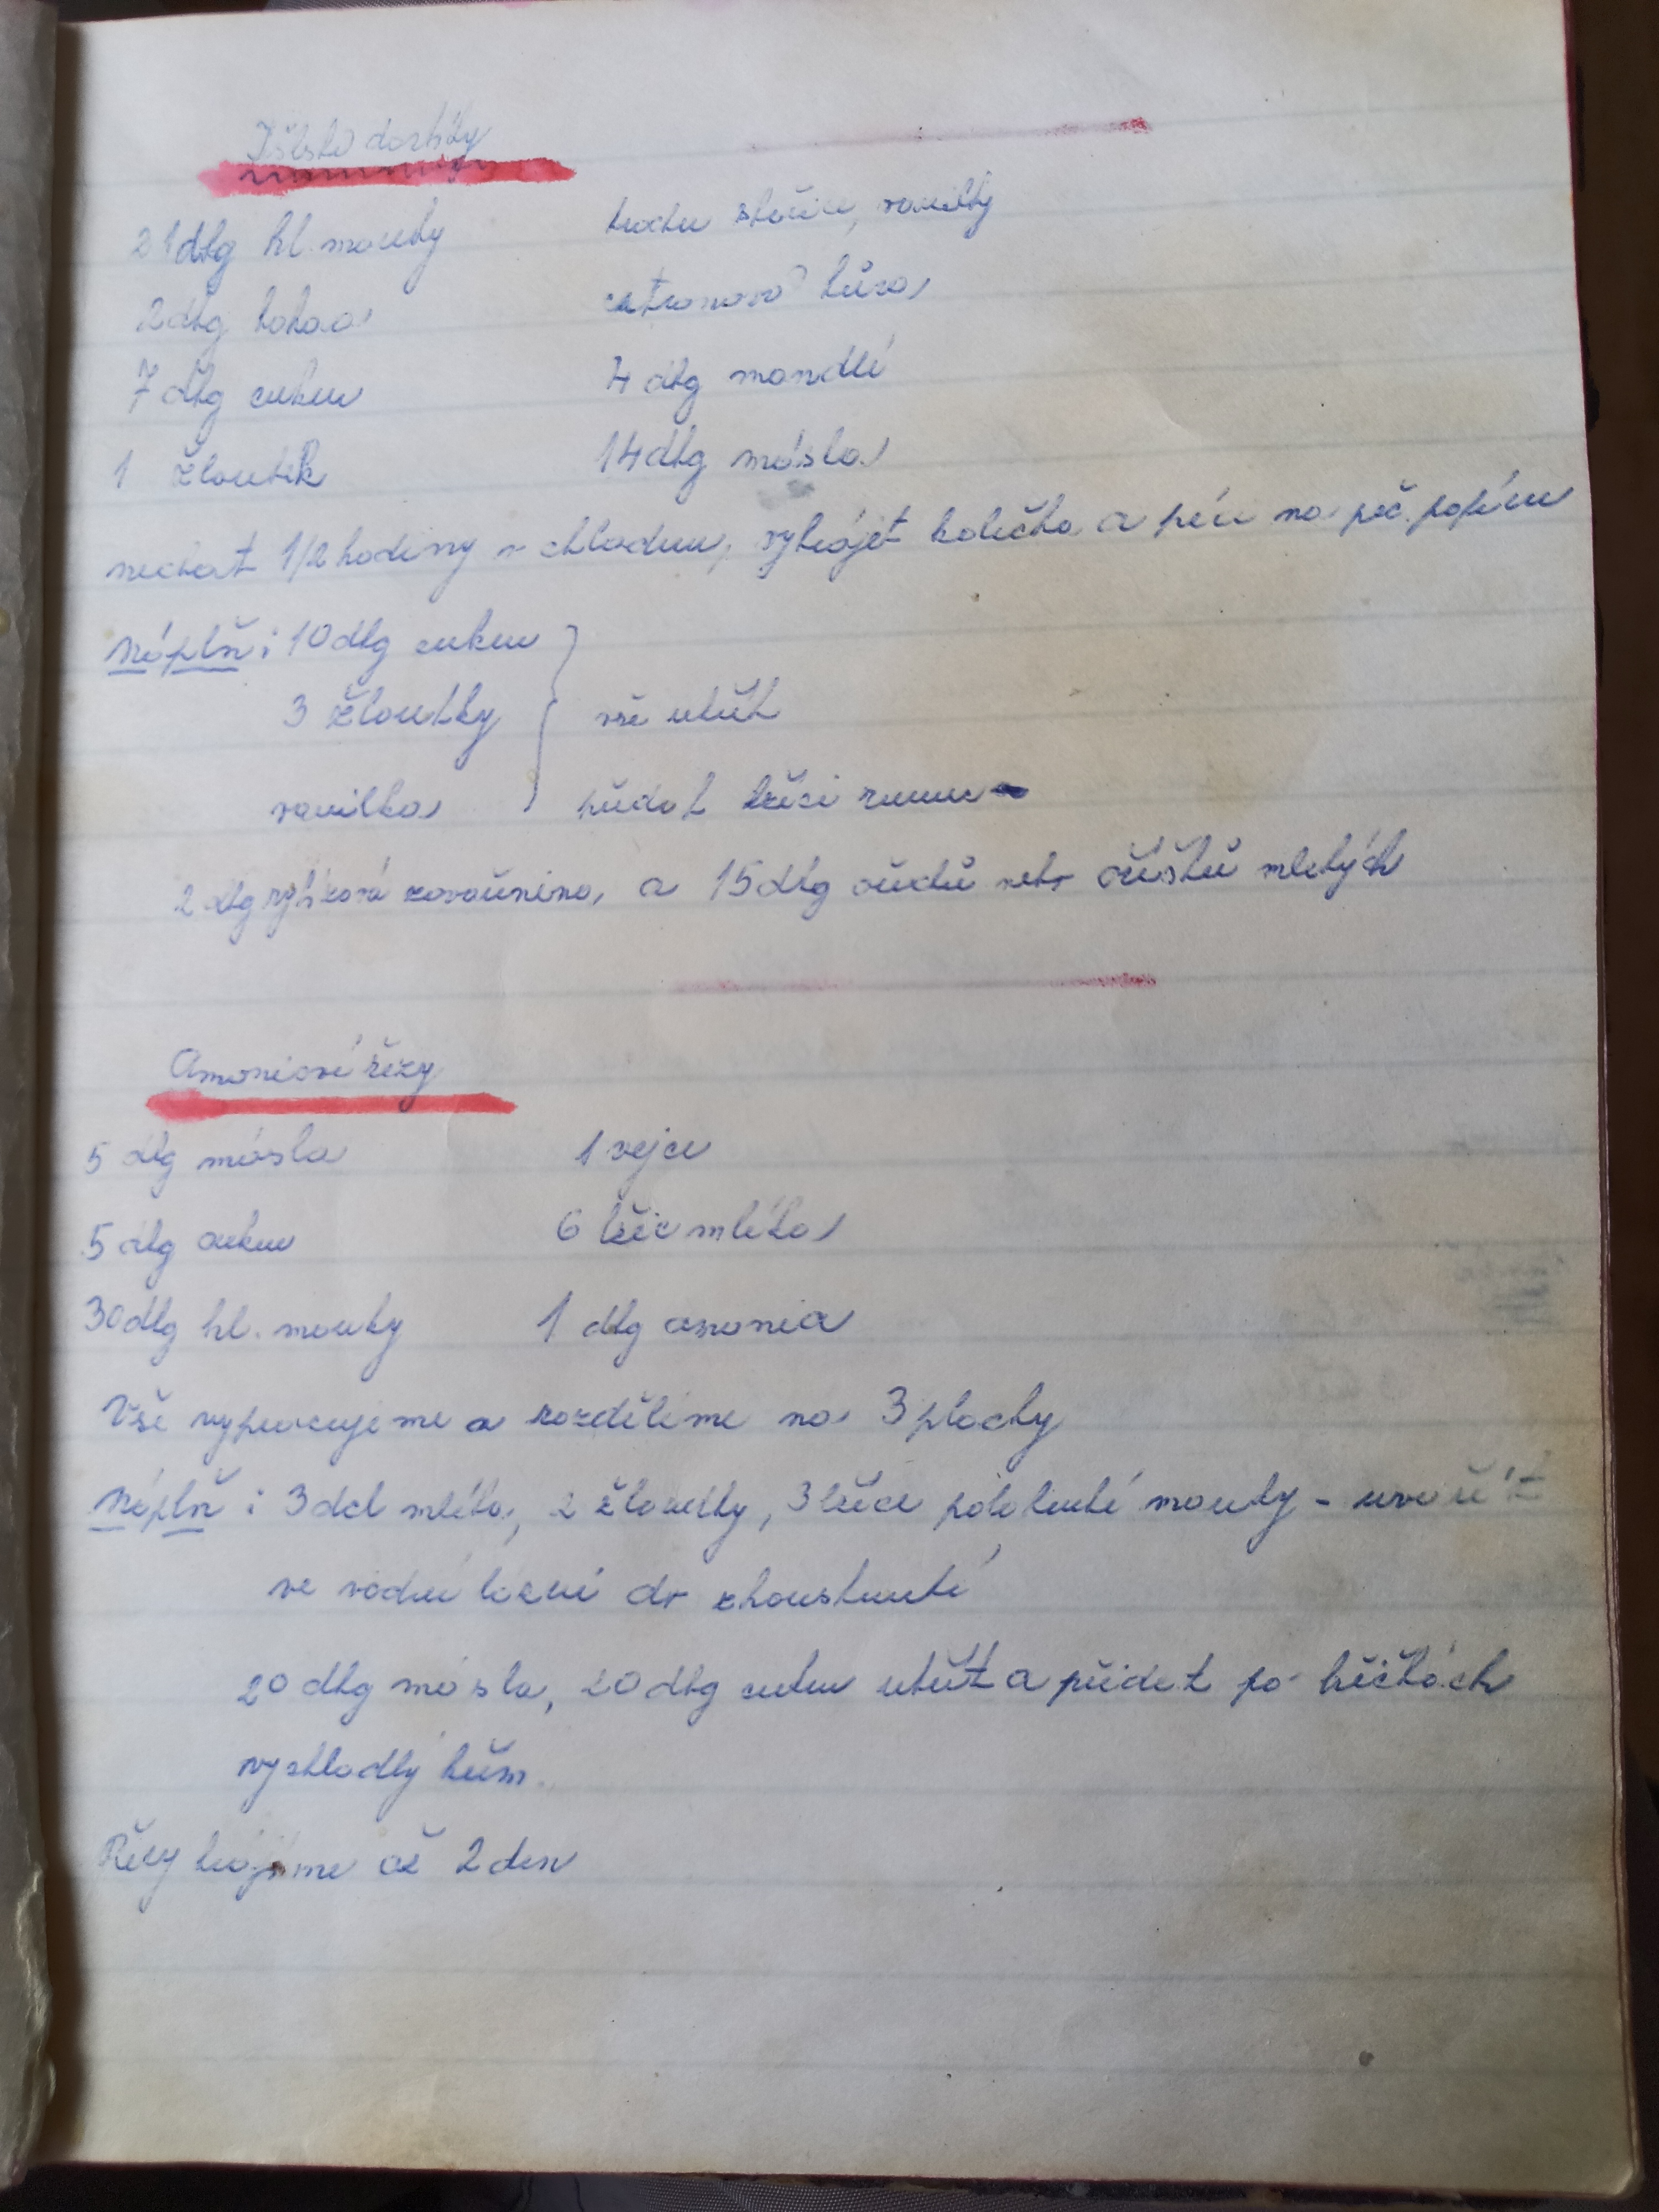 Išlské dortíky
21 dkg hl. mouky trochu skořice, vanilky
2 dkg kakaa citronová kůra
7 dkg cukru 7 dkg mandlí
1 žloutek 14 dkg másla
nechat 1/2 hodiny v chladnu, vykrájet kolečka a péci na peč. papíru
Náplň: 10 dkg cukru
3 žloutky vše utřít
vanilka přidat lžíci rumu
2 dkg rybízová zavařenina, a 15 dkg ořechů nebo oříšků mletých
Amoniové řezy
5 dkg másla 1 vejce
5 dkg cukru 6 lžic mléka
30 dkg hl. mouky 1 dkg amonia
Vše vypracujeme a rozdělíme na 3 plachy
Náplň: 3 dcl mléka, 2 žloutky, 3 lžíce polohrubé mouky - uvařit
ve vodní lázni do zhoustnutí
20 dkg másla, 20 dkg cukru utřít a přidat po lžičkách
vychladlý krém.
Řezy krájíme až 2 den